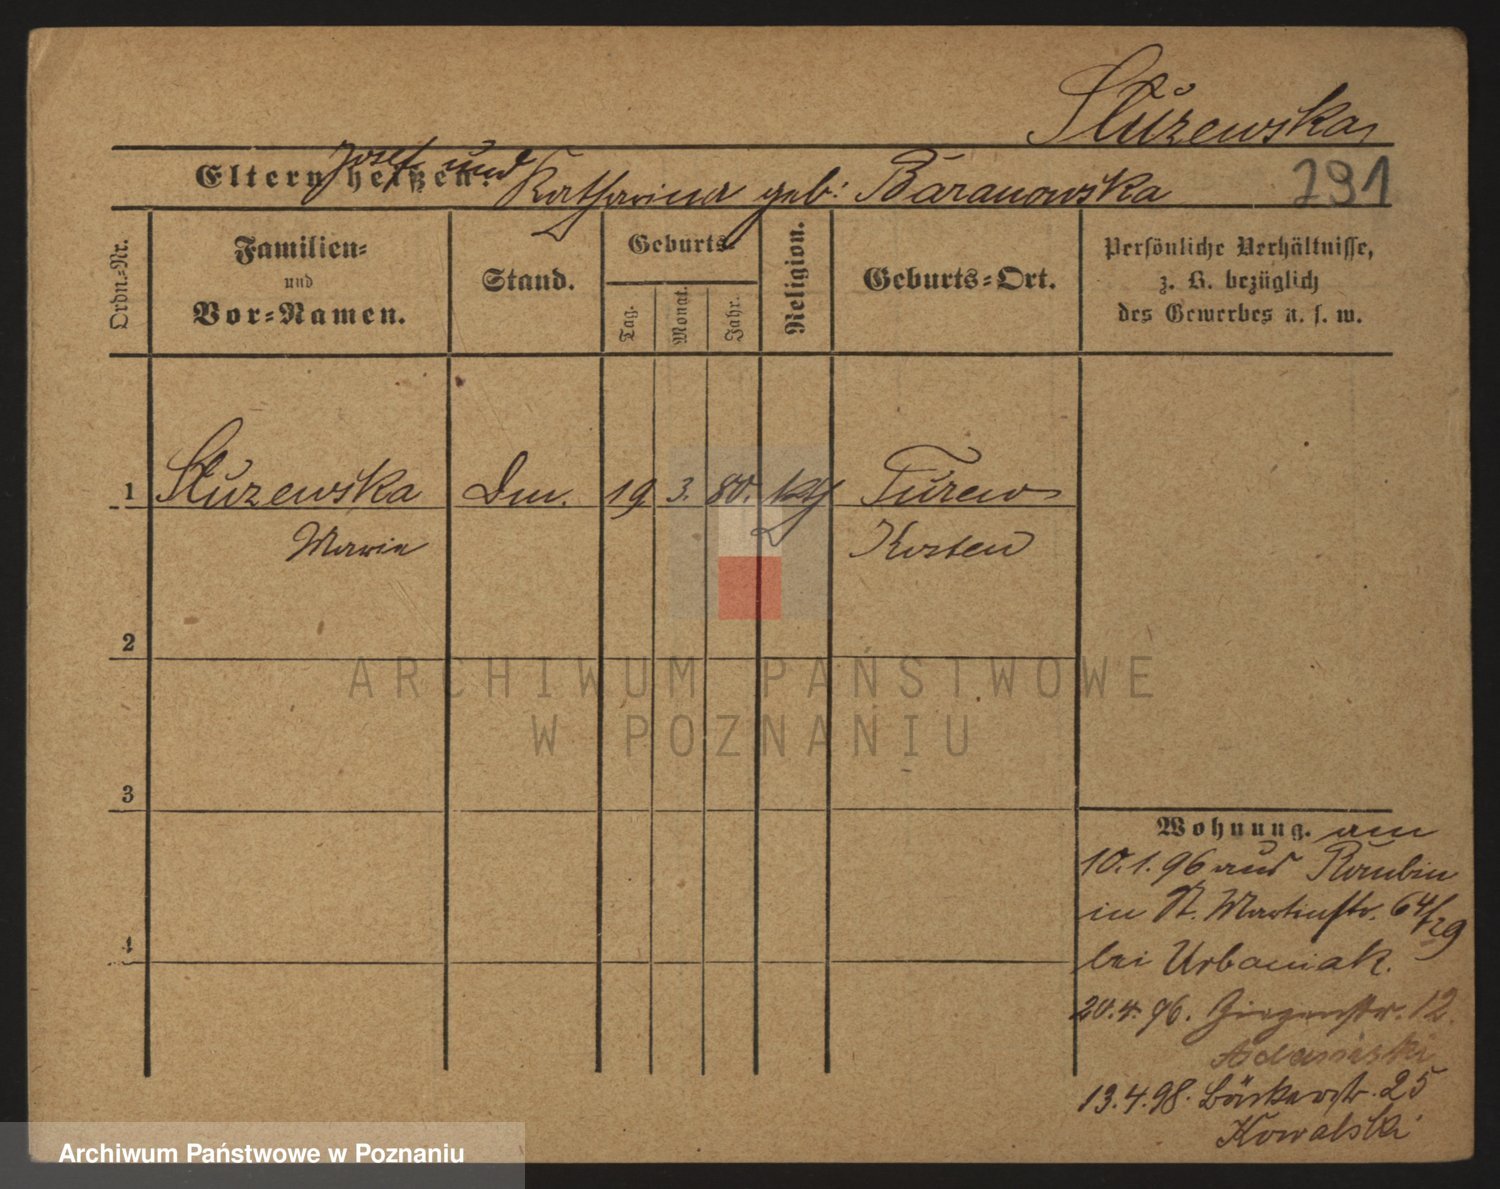 Służewska
Eltern heißen: Josef und Katharina geb: Baranowska
291
Ordn.-Nr.
Familien-
und
Vor-Namen.
Stand.
Geburts-
Tag.
Monat.
Jahr.
Religion.
Geburts-Ort.
Persönliche Verhältnisse,
z. B. bezüglich
des Gewerbes u. s. w.
1 Służewska Dm. 19 3. 80. kth Turew
Marie Kosten
2
3
4
Wohnung. am
10.1.96 aus Rombin
in St. Martinstr. 64/29
bei Urbaniak.
20.4.96. 12.
Adamski
13.4.98. Bäckerstr. 25
Kowalski
ARCHIWUM PAŃSTWOWE
W POZNANIU
Archiwum Państwowe w Poznaniu